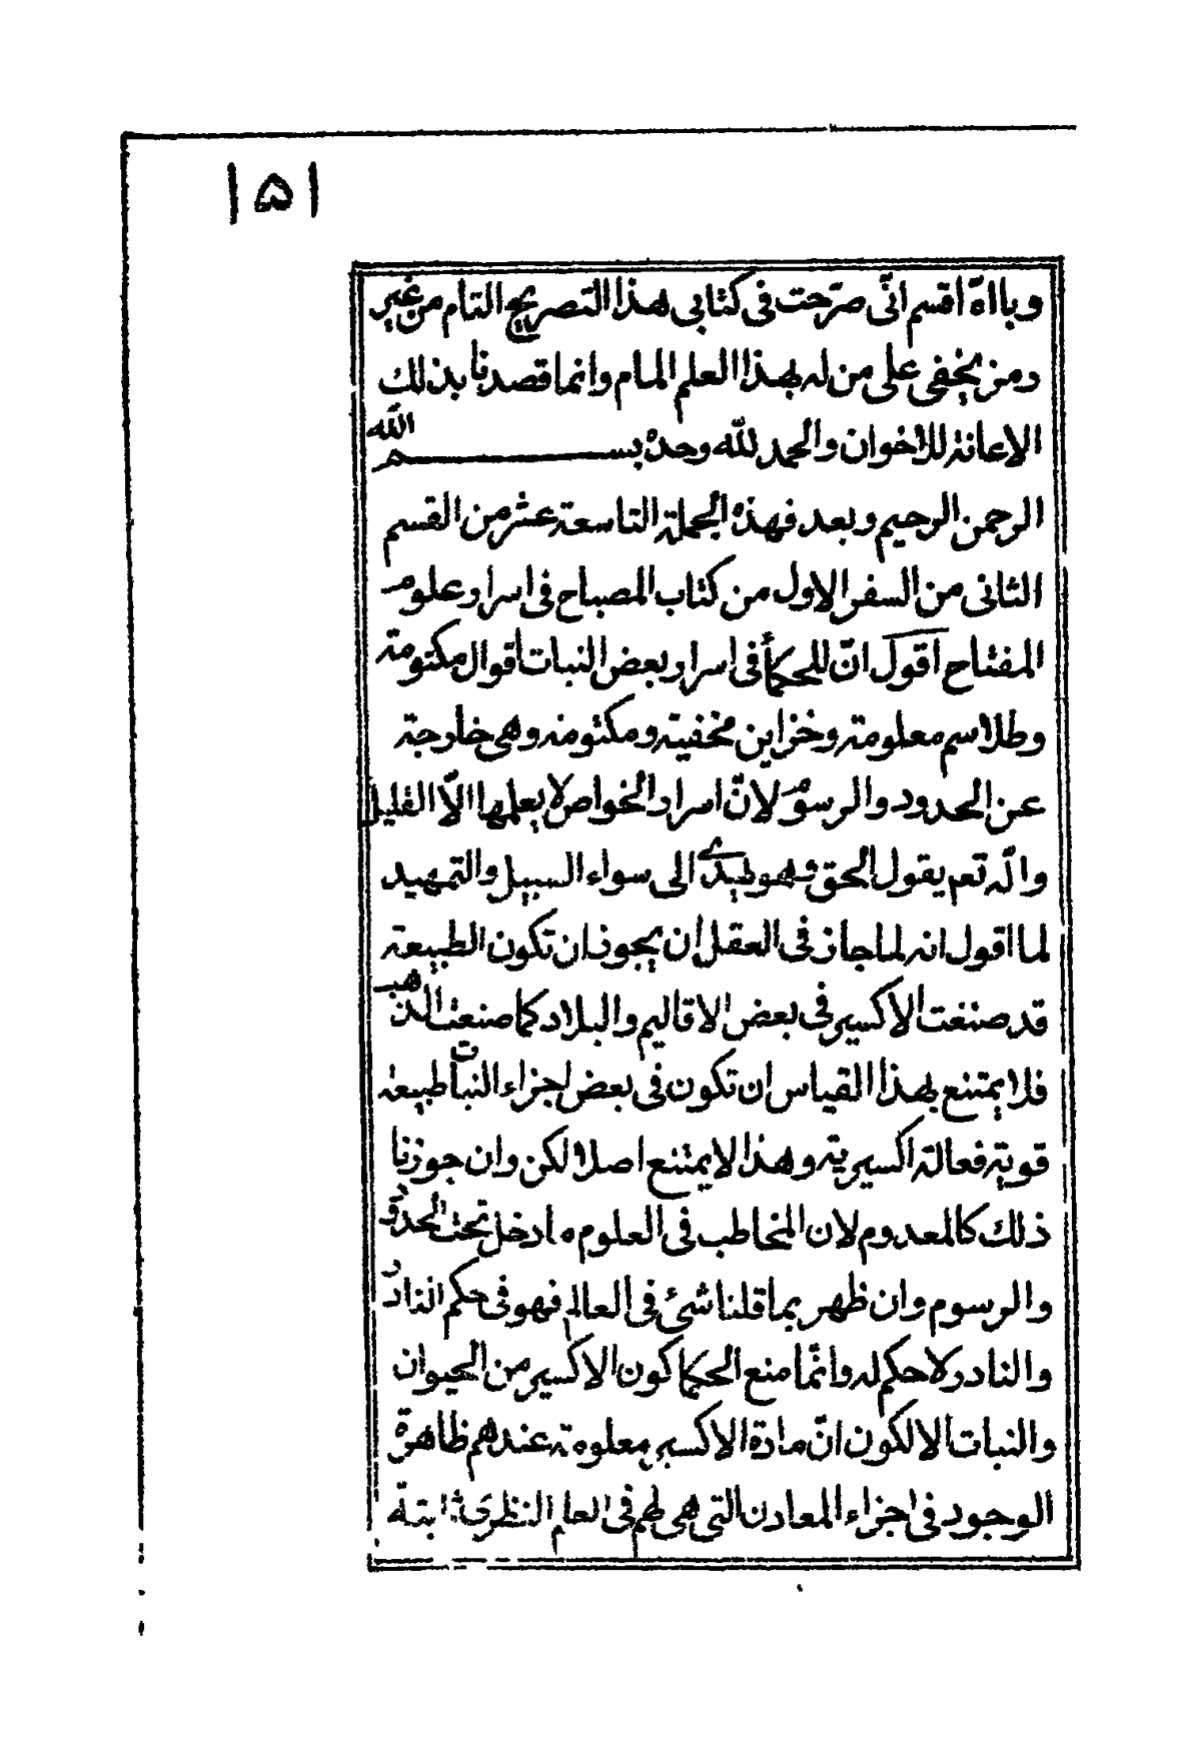 ١۵١
وبالله اقسم انّى صرّحت فى كتابى هذا التصريح التام من غير
رمز يخفى على من له بهذا العلم المام وانما قصدنا بذلك
الاعانة للاخوان والحمد لله وحده بسم الله
الرحمن الرحيم وبعد فهذه الجملة التاسعة عشر من القسم
الثانى من السفر الاول من كتاب المصباح فى اسرار علوم
المفتاح اقول انّ للحكمأ فى اسرار بعض النبات اقوال مكتومة
وطلاسم معلومة وخزاين مخفية ومكتومة وهى خارجة
عن الحدود والرسوم لانّ اسرار الخواص لا يعلمها الّا القليل
والله تعم يقول الحق وهو يهدى الى سواء السبيل والتمهيد
لما اقول انه لما جاز فى العقل ان يجوز ان تكون الطبيعة
قد صنعت الاكسير فى بعض الاقاليم والبلاد كما صنعت الذهب
فلا يمتنع بهذا القياس ان تكون فى بعض اجزاء النبات طبيعة
قوية فعالة اكسيرية وهذا لا يمتنع اصلا لكن وان جوزنا
ذلك كالمعدوم لان المخاطب فى العلوم ما دخل تحت الحدود
والرسوم وان ظهر بما قلنا شئ فى العالم فهو فى حكم النادر
والنادر لا حكم له وانّما منع الحكما كون الاكسير من الحيوان
والنبات الا لكون انّ مادة الاكسير معلومة عندهم ظاهرة
الوجود فى اجزاء المعادن التى هى لهم فى العلم النظرى ثابتة